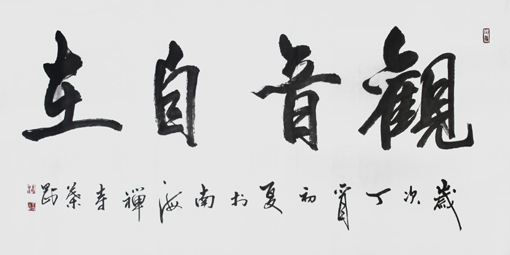 觀音自在
歲次丁酉初夏於南海禪寺